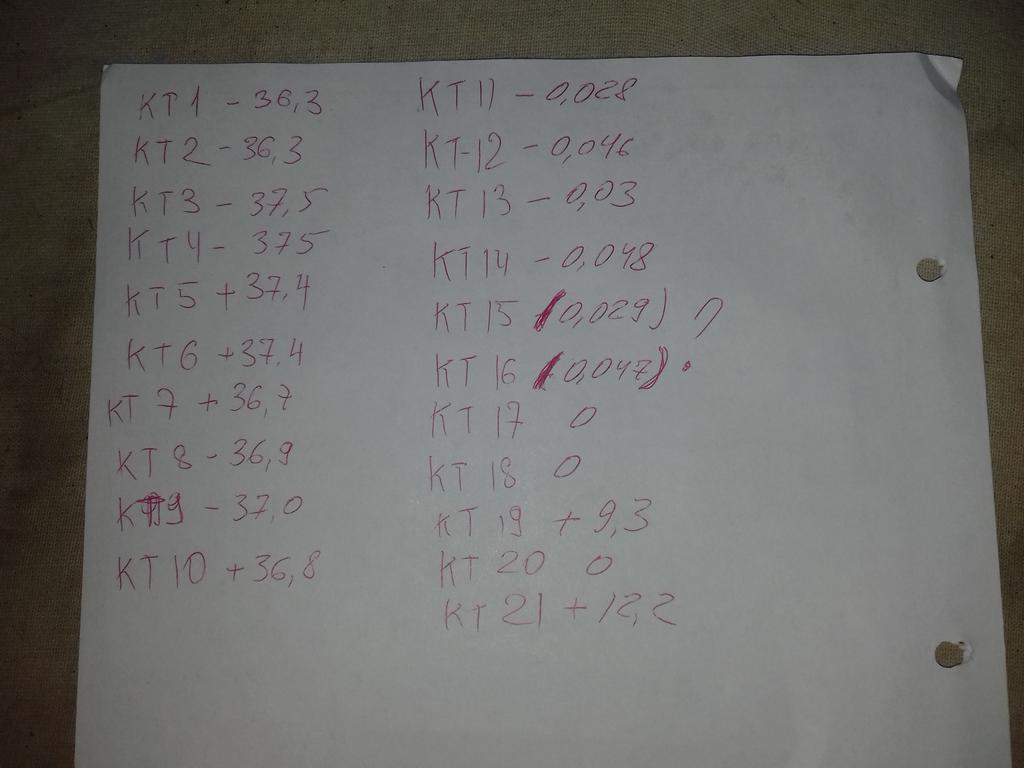 КТ1 - 36,3
КТ2 - 36,3
КТ3 - 37,5
КТ4 - 375
КТ5 + 37,4
КТ6 + 37,4
КТ 7 + 36,7
КТ 8 - 36,9
КТ9 - 37,0
КТ10 + 36,8
КТ11 - 0,028
КТ-12 - 0,046
КТ 13 - 0,03
КТ14 - 0,048
КТ15 (0,029)
КТ 16 (0,047)
КТ 17 0
КТ 18 0
КТ 19 + 9,3
КТ 20 0
КТ 21 + 12,2